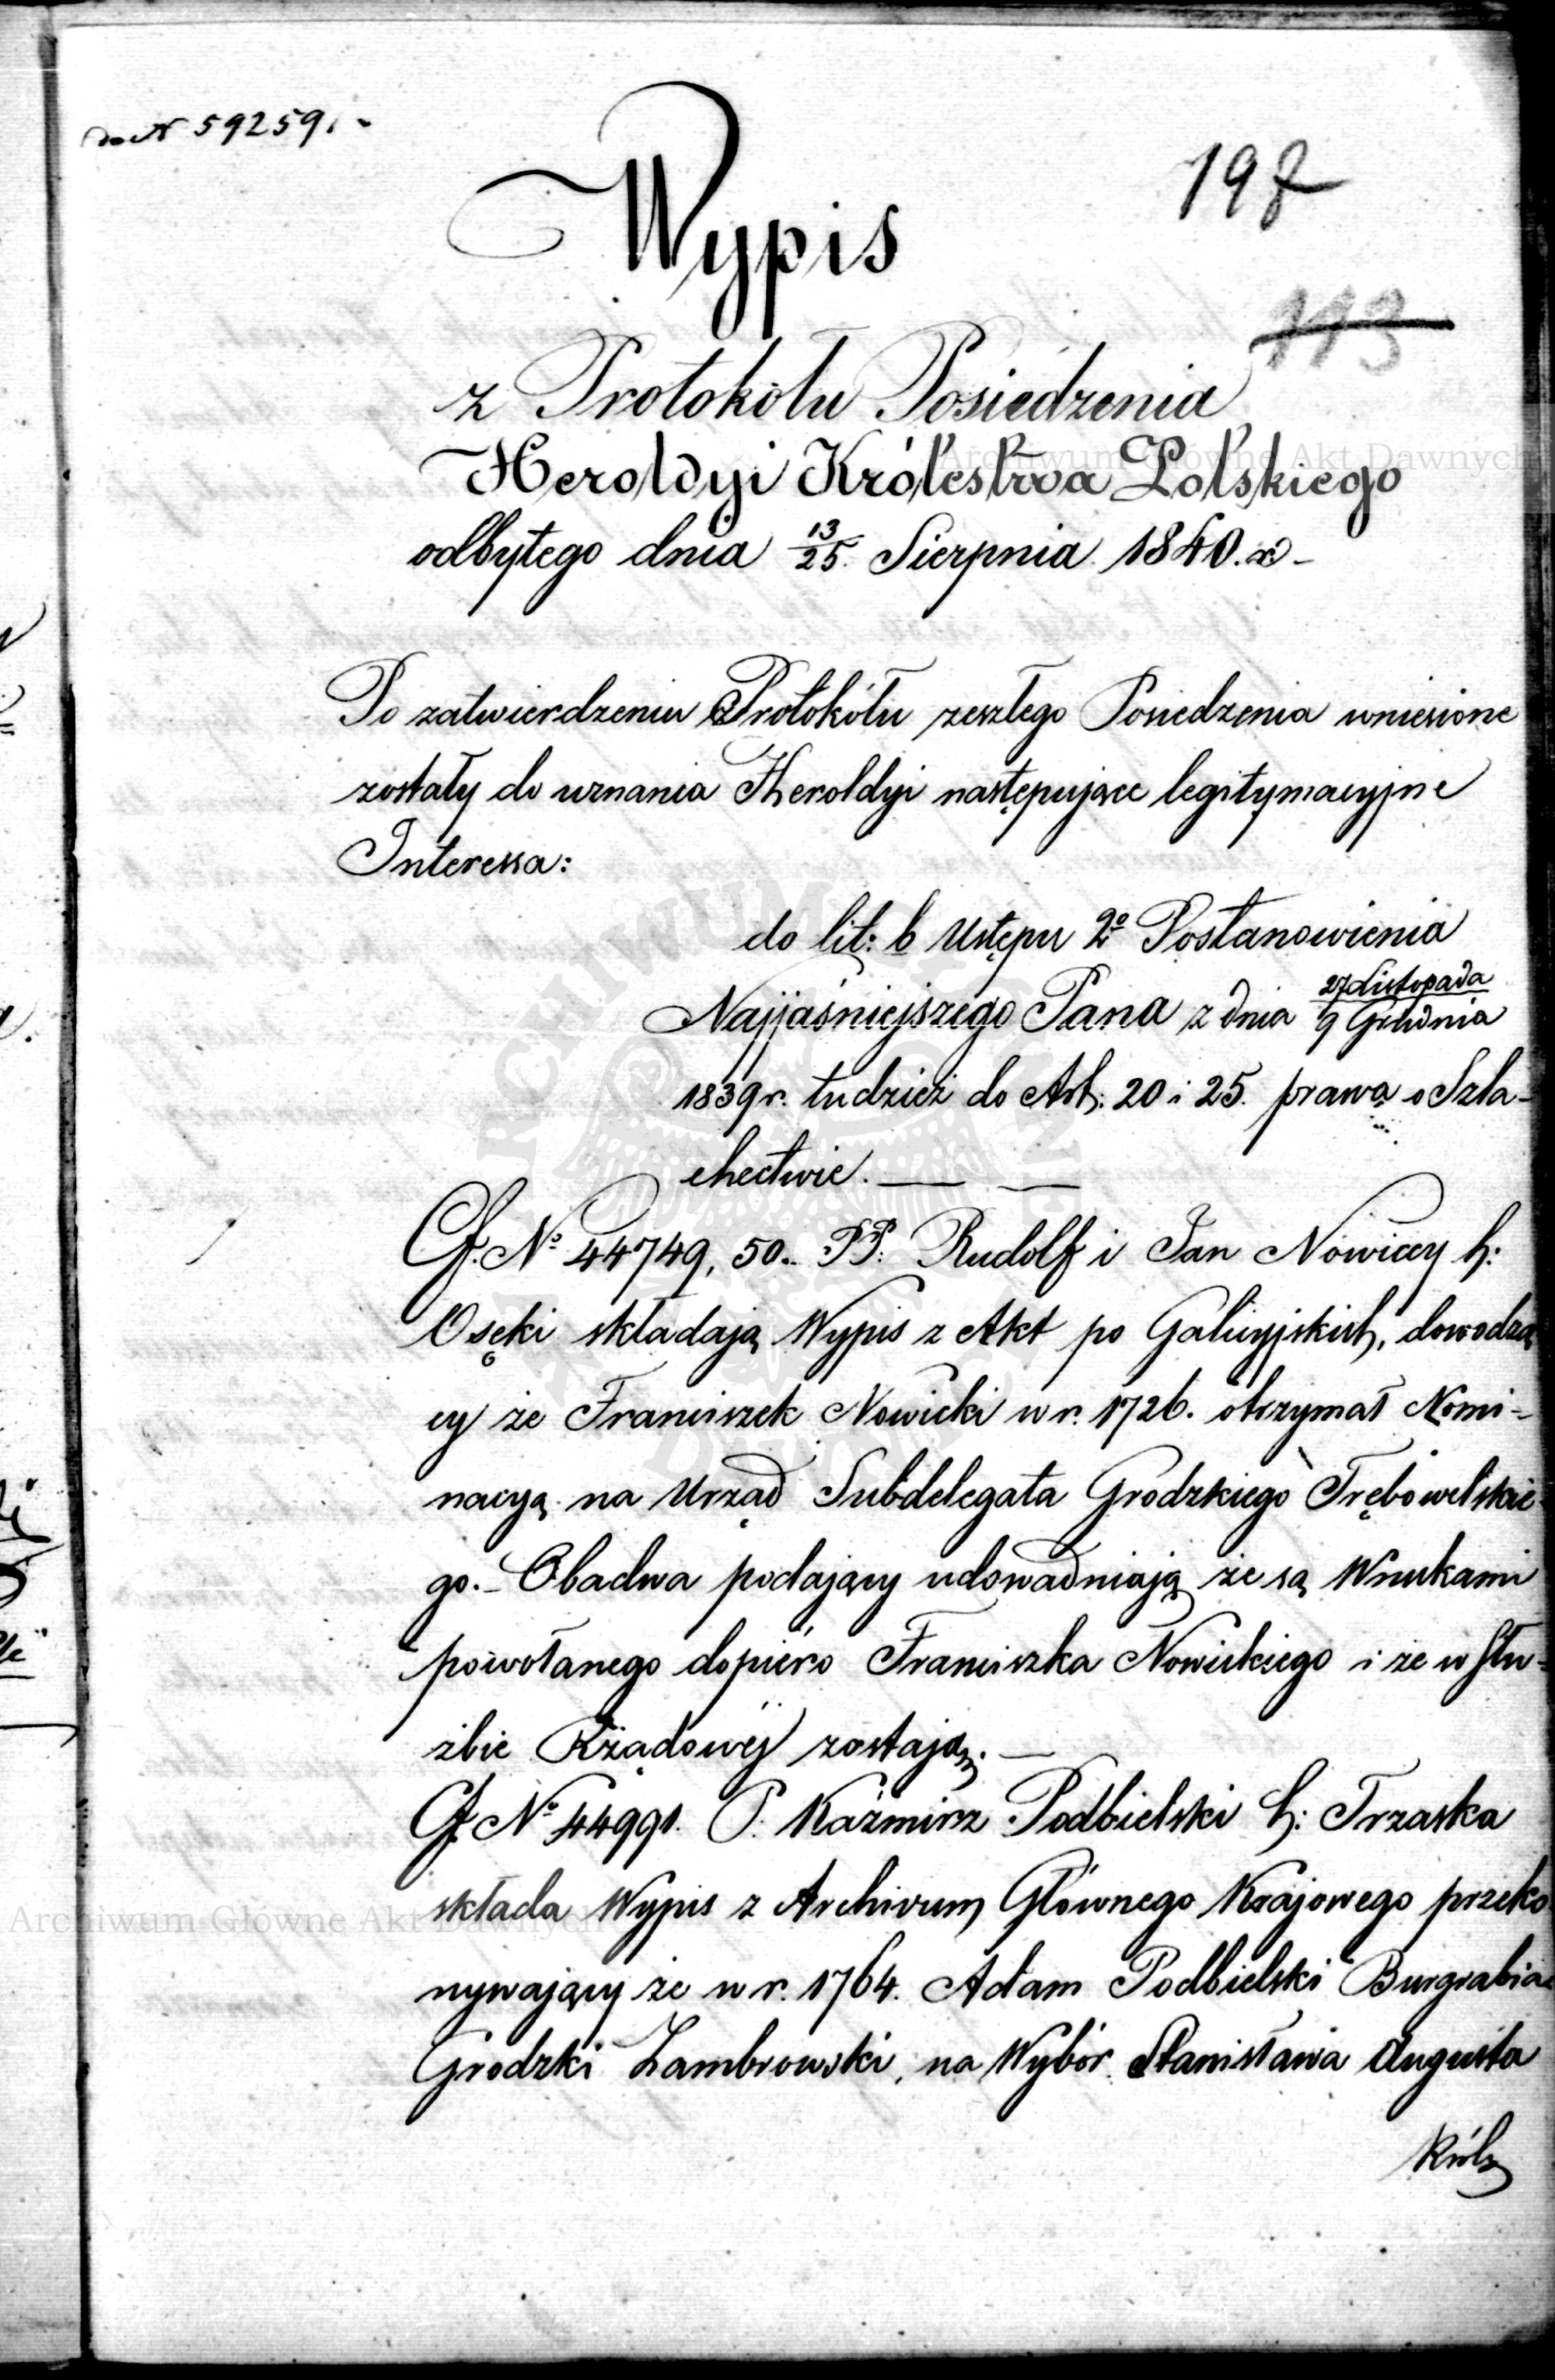 do N 59259.
197
113
Wypis
z Protokółu Posiedzenia
Heroldyi Królestwa Polskiego
odbytego dnia 13/25. Sierpnia 1840. r.
Po zatwierdzeniu Protokółu zeszłego Posiedzenia wniesione
zostały do uznania Heroldyi następujące legitymacyjne
Interessa:
do lit: b Ustępu 2º Postanowienia
Najjaśniejszego Pana z dnia 27 Listopada / 9 Grudnia
1839 r. tudzież do Art: 20 i 25. prawa o Szla-
chectwie.
Nº 44749, 50. PP. Rudolf i Jan Nowiccy h:
Osęki składają Wypis z Akt po Galicyjskich, dowodzą
cy że Franciszek Nowicki w r. 1726. otrzymał Nomi-
nacyą na Urząd Subdelegata Grodzkiego Trębowelskie-
go. Obadwa podający udowadniają że są Wnukami
powołanego dopiéro Franciszka Nowickiego i że w słu-
żbie Rządowéj zostają.
Nº 44991. P. Kaźmirz Podbielski h: Trzaska
składa Wypis z Archivum Głównego Krajowego przeko
nywający że w r. 1764. Adam Podbielski Burgrabia
Grodzki Zambrowski, na Wybór Stanisława Augusta
Króla
Archiwum Główne Akt Dawnych
Archiwum Główne Akt Dawnych